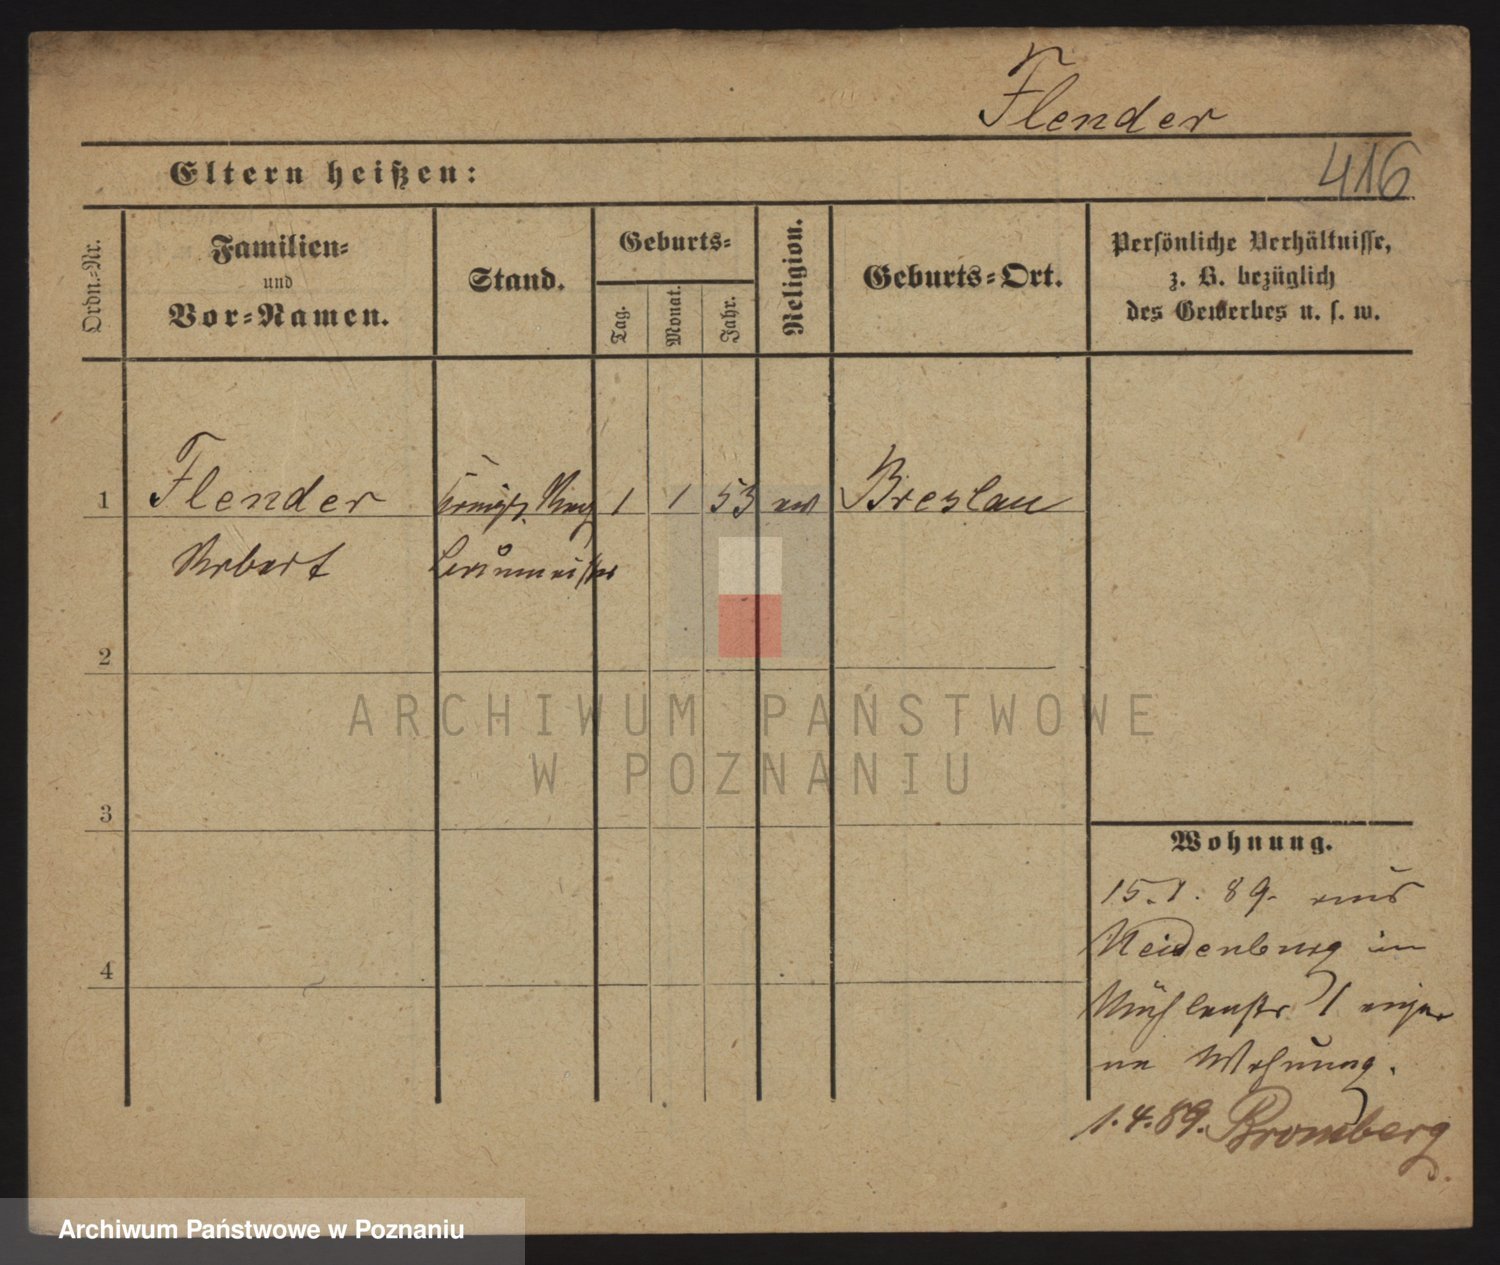 Flender
Eltern heißen:
416
Ordn.-Nr.
Familien-
und
Vor-Namen.
Stand.
Geburts-
Tag.
Monat.
Jahr.
Religion.
Geburts-Ort.
Persönliche Verhältnisse,
z. B. bezüglich
des Gewerbes u. s. w.
1 Flender 1 1 53 ev Breslau
Robert baumeister
2
3
4
ARCHIWUM PAŃSTWOWE
W POZNANIU
Wohnung.
15.1. 89. aus
Neidenburg in
Mühlenstr
ne Wohnung.
1.4.89. Bromberg
Archiwum Państwowe w Poznaniu